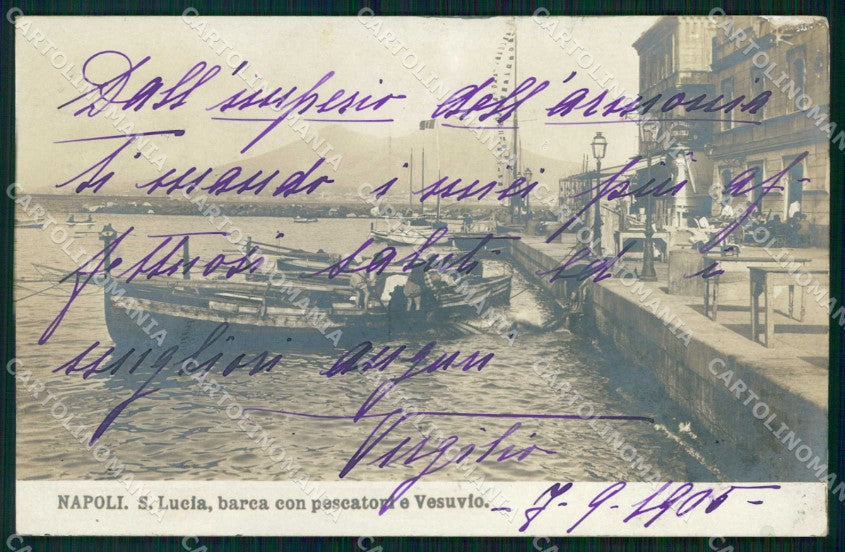 Dall'imperio dell'armonia
Ti mando i miei più af-
fettuosi saluti ed i
migliori auguri
Virgilio
NAPOLI. S. Lucia, barca con pescatori e Vesuvio.
- 7-9-1905 -
CARTOLINOMANIA